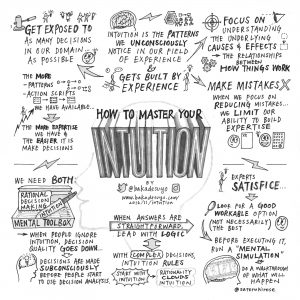 GET EXPOSED TO
AS MANY DECISIONS
IN OUR DOMAIN
AS POSSIBLE
THE MORE
- PATTERNS
- ACTION SCRIPTS
WE HAVE AVAILABLE...
THE MORE EXPERTISE
WE HAVE &
THE EASIER IT IS
MAKE DECISIONS
INTUITION IS THE PATTERNS
WE UNCONSCIOUSLY
NOTICE IN OUR FIELD
OF EXPERIENCE
&
GETS BUILT BY
EXPERIENCE
FOCUS ON
UNDERSTANDING
THE UNDERLYING
CAUSES & EFFECTS
- THE RELATIONSHIPS
BETWEEN
HOW THINGS WORK
MAKE MISTAKES
WHEN WE FOCUS ON
REDUCING MISTAKES...
WE LIMIT OUR
ABILITY TO BUILD
EXPERTISE
HOW TO MASTER YOUR
INTUITION
BY
@bakadesuyo
www.bakadesuyo.com/
WE NEED BOTH:
RATIONAL
DECISION
MAKING
INTUITION
MENTAL TOOLBOX
WHEN PEOPLE IGNORE
INTUITION, DECISION
QUALITY GOES DOWN.
DECISIONS ARE MADE
SUBCONSCIOUSLY
BEFORE PEOPLE START
TO USE DECISION ANALYSIS.
WHEN ANSWERS ARE
STRAIGHTFORWARD,
LEAD WITH LOGIC
WITH COMPLEX DECISIONS,
INTUITION RULES
START WITH
INTUITION
RATIONALITY
CLOUDS
INTUITION.
EXPERTS
SATISFICE
LOOK FOR A GOOD
WORKABLE OPTION
(NOT NECESSARILY)
THE BEST
BEFORE EXECUTING IT,
RUN A "MENTAL
SIMULATION"
DO A WALKTHROUGH
OF WHAT WILL
HAPPEN